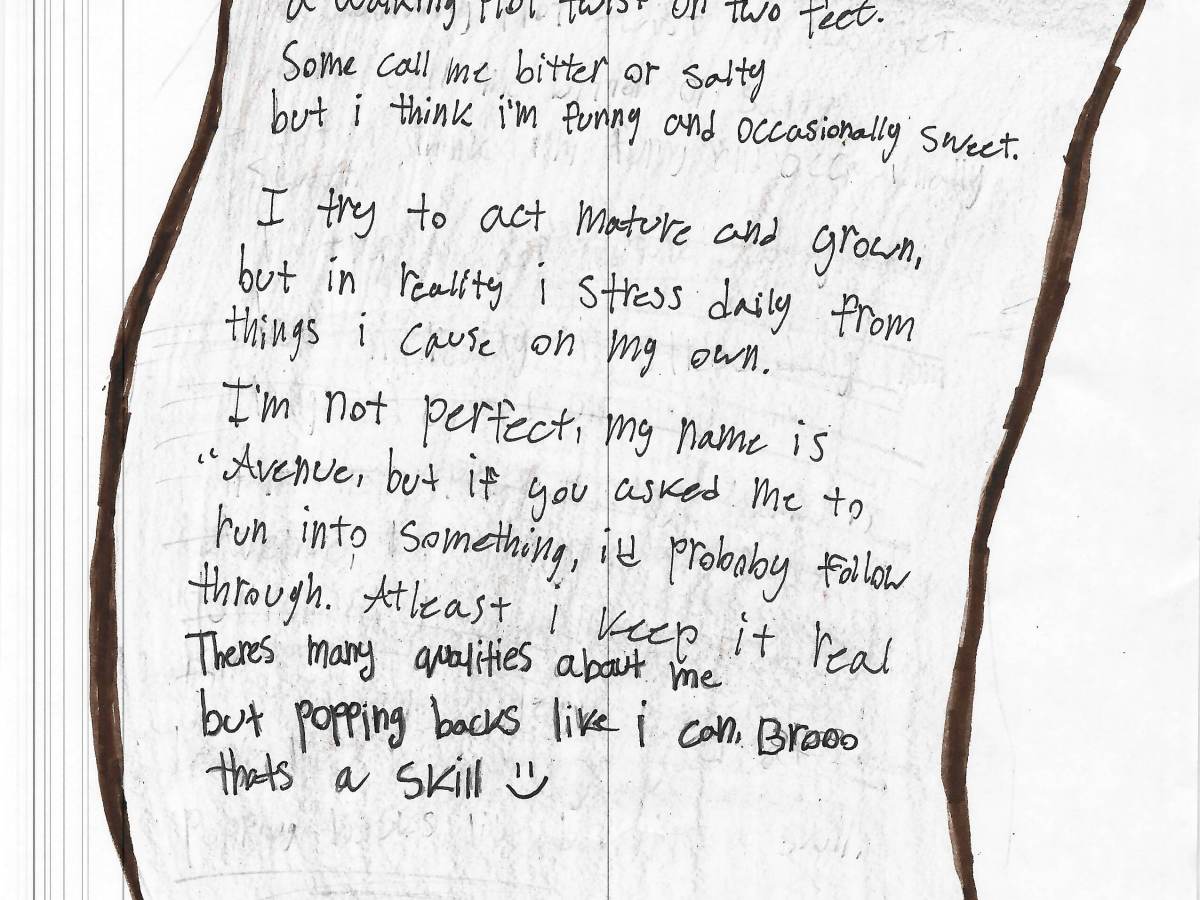 a walking plot twist on two feet.
Some call me bitter or salty
but i think i'm funny and occasionally sweet.
I try to act mature and grown,
but in reality i stress daily from
things i cause on my own.
I'm not perfect, my name is
"Avenue, but if you asked me to
run into something, i'd probaby follow
through. Atleast i keep it real
Theres many qualities about me
but popping backs like i can. Brooo
thats a skill :)